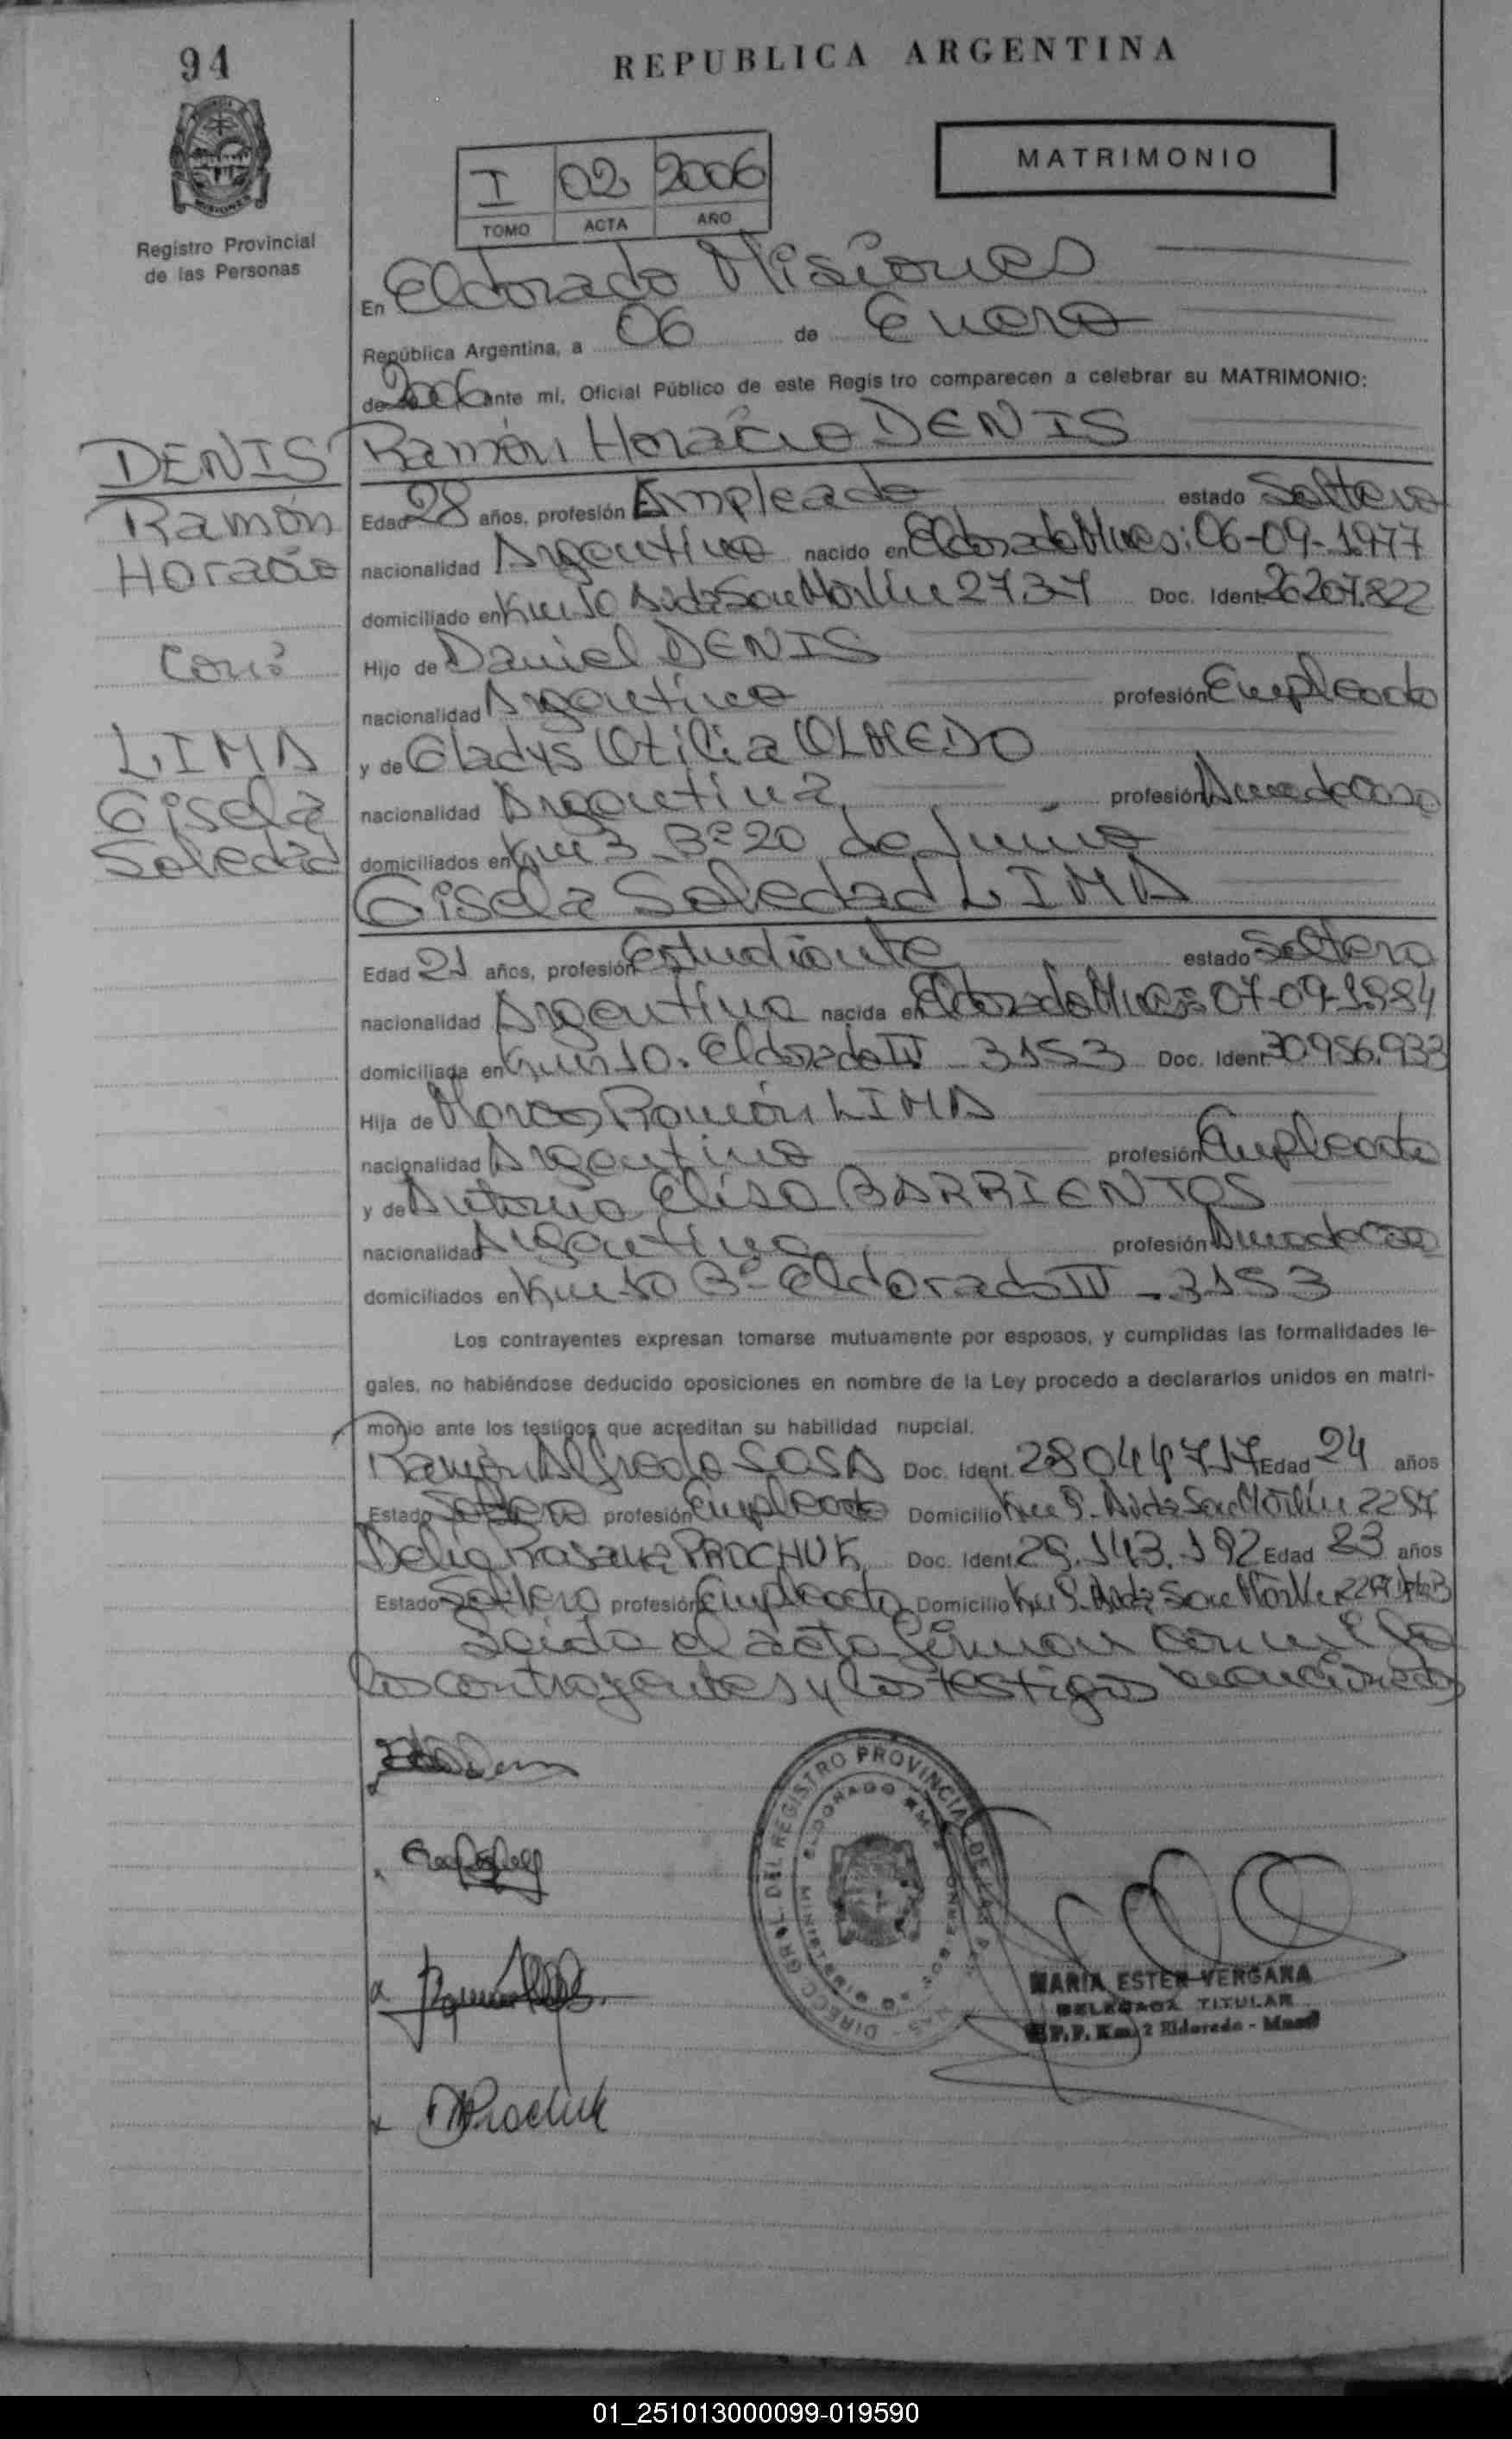 94
REPUBLICA ARGENTINA
MATRIMONIO
I 02 2006
TOMO ACTA AÑO
Registro Provincial
de las Personas
En Eldorado Misiones
República Argentina, a 06 de Enero
de 2006 ante mí, Oficial Público de este Registro comparecen a celebrar su MATRIMONIO:
DENIS
Ramón
Horacio
Con:
LIMA
Gisela
Soledad
Ramón Horacio DENIS
Edad 28 años, profesión Empleado estado Soltero
nacionalidad Argentino nacido en Eldorado Mnes: 06-09-1977
domiciliado en Km 10 Avda San Martín 2737 Doc. Ident. 26.207.822
Hijo de Daniel DENIS
nacionalidad Argentino profesión Empleado
y de Gladys Otilia OLMEDO
nacionalidad Argentina profesión Ama de Casa
domiciliados en Km 3 Bº 20 de Junio
Gisela Soledad LIMA
Edad 21 años, profesión Estudiante estado Soltera
nacionalidad Argentina nacida en Eldorado Mnes: 07-09-1984
domiciliada en Km 10. Eldorado IV - 3153 Doc. Ident. 30.956.933
Hija de Marcos Ramón LIMA
nacionalidad Argentino profesión Empleado
y de Antonia Elisa BARRIENTOS
nacionalidad Argentina profesión Ama de Casa
domiciliados en Km 10 Bº Eldorado IV - 3153
Los contrayentes expresan tomarse mutuamente por esposos, y cumplidas las formalidades le-
gales, no habiéndose deducido oposiciones en nombre de la Ley procedo a declararlos unidos en matri-
monio ante los testigos que acreditan su habilidad nupcial.
Ramón Alfredo SOSA Doc. Ident. 28044717 Edad 24 años
Estado Soltero profesión Empleado Domicilio Km 9. Avda San Martín
Delia Rosana PROCHUK Doc. Ident. 29.143.192 Edad 23 años
Estado Soltera profesión Empleada Domicilio Km 9. Avda San Martín
Leida el acta firman con mi
los contrayentes y los testigos mencionados
DIREC. GRAL. DEL REGISTRO PROVINCIAL DE LAS
ELDORADO KM.
MARIA ESTER VERGARA
DELEGADA TITULAR
Km. 2 Eldorado - Mnes
01_251013000099-019590